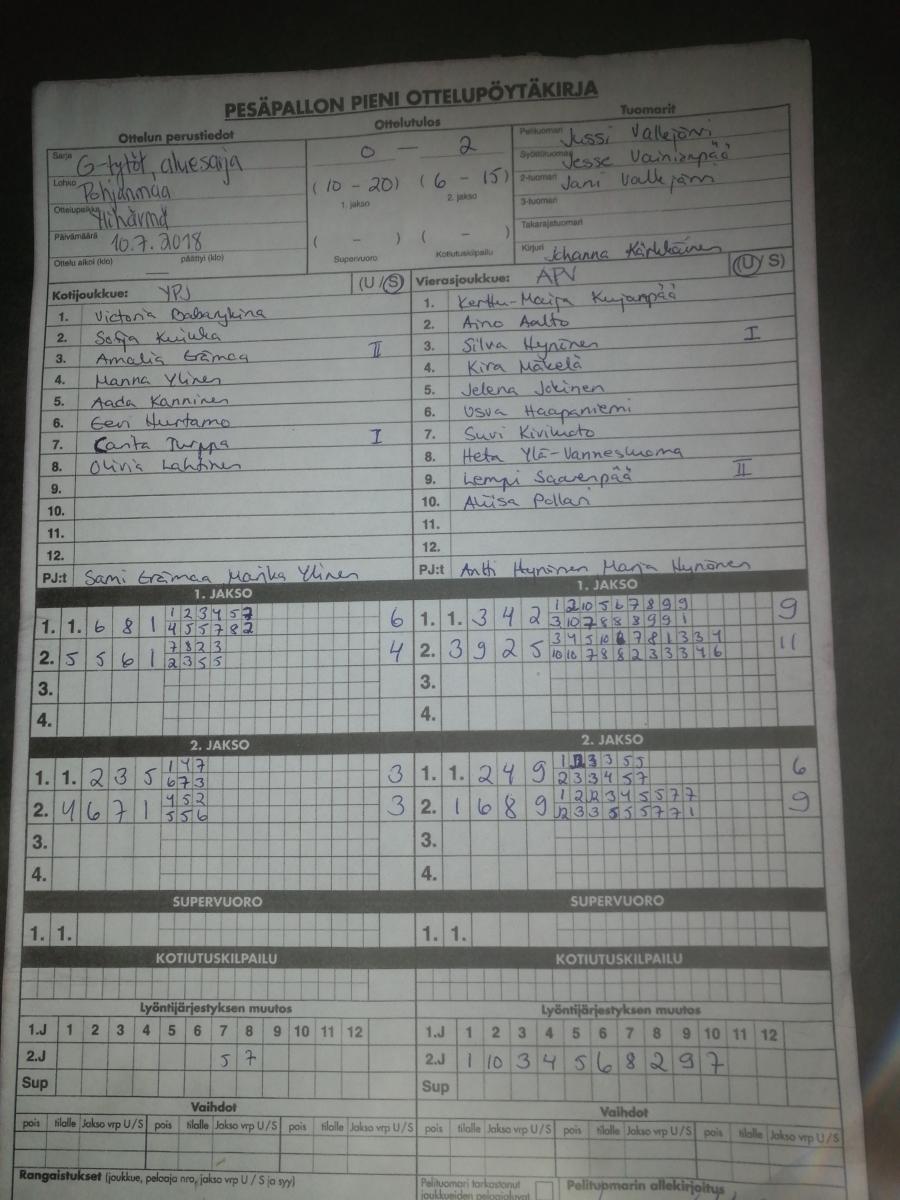 PESÄPALLON PIENI OTTELUPÖYTÄKIRJA
Ottelun perustiedot
Ottelutulos
Tuomarit
Sarja G-tytöt, aluesarja
Lohko Pohjanmaa
Ottelupaikka Ylihärmä
Päivämäärä 10.7.2018
Ottelu alkoi (klo) — päättyi (klo)
0 — 2
(10 - 20) (6 - 15)
1. jakso 2. jakso
( - ) ( - )
Supervuoro Kotiutuskilpailu
Pelituomari Jussi Vallejärvi
Syöttötuomari Jesse Vainionpää
2-tuomari Jani Vallejärvi
3-tuomari
Takarajatuomari
Kirjuri Johanna Kärkkäinen
Kotijoukkue: YPJ (U/S)
1. Victoria Babarykina
2. Sofja
3. Amalia Erämaa II
4. Manna Ylinen
5. Aada Kanninen
6. Eevi Hurtamo
7. Carita Turppa I
8. Olivia Lahtinen
9.
10.
11.
12.
PJ:t Sami Erämaa Marika Ylinen
Vierasjoukkue: APV (U/S)
1. Kerttu-Maija Kujanpää
2. Aino Aalto
3. Silva Hynönen I
4. Kira Mäkelä
5. Jelena Jokinen
6. Usva Haapaniemi
7. Suvi Kivimoto
8. Heta Ylä-Vannesluoma
9. Lempi Saarenpää II
10. Aliisa Pollari
11.
12.
PJ:t Antti Hynönen Marja Hynönen
1. JAKSO
1 2 3 4 5 7
1. 1. 6 8 1 6
4 5 5 7 8 2
7 8 2 3
2. 5 5 6 1 4
2 3 5 5
3.
4.
1. JAKSO
1 2 10 5 6 7 8 9 9
1. 1. 3 4 2 9
3 10 7 8 8 8 9 9 1
3 4 5 10 6 7 8 1 3 3 4
2. 3 9 2 5 11
10 10 7 8 8 2 3 3 3 4 6
3.
4.
2. JAKSO
1 4 7
1. 1. 2 3 5 3
6 7 3
4 5 2
2. 4 6 7 1 3
5 5 6
3.
4.
2. JAKSO
1. 1. 2 4 9 6
2 3 3 4 5 7
1 2 2 3 4 5 5 7 7
2. 1 6 8 9 9
2 3 3 5 5 5 7 7 1
3.
4.
SUPERVUORO
1. 1.
SUPERVUORO
1. 1.
KOTIUTUSKILPAILU
KOTIUTUSKILPAILU
Lyöntijärjestyksen muutos
1.J 1 2 3 4 5 6 7 8 9 10 11 12
2.J 5 7
Sup
Lyöntijärjestyksen muutos
1.J 1 2 3 4 5 6 7 8 9 10 11 12
2.J 1 10 3 4 5 6 8 2 9 7
Sup
Vaihdot
pois tilalle Jakso vrp U/S pois tilalle Jakso vrp U/S pois tilalle Jakso vrp U/S
Vaihdot
pois tilalle Jakso vrp U/S pois tilalle Jakso vrp U/S pois tilalle Jakso vrp U/S
Rangaistukset (joukkue, pelaaja nro, jakso vrp U / S ja syy)
Pelituomari tarkastanut
joukkueiden pelaajaluvat
Pelituomarin allekirjoitus